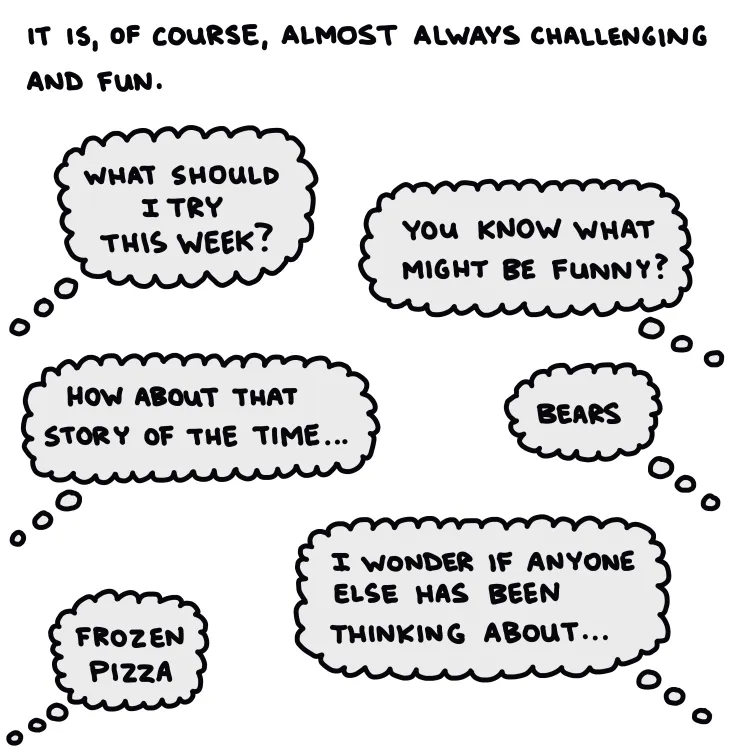 IT IS, OF COURSE, ALMOST ALWAYS CHALLENGING
AND FUN.
WHAT SHOULD
I TRY
THIS WEEK?
YOU KNOW WHAT
MIGHT BE FUNNY?
HOW ABOUT THAT
STORY OF THE TIME...
BEARS
I WONDER IF ANYONE
ELSE HAS BEEN
THINKING ABOUT...
FROZEN
PIZZA